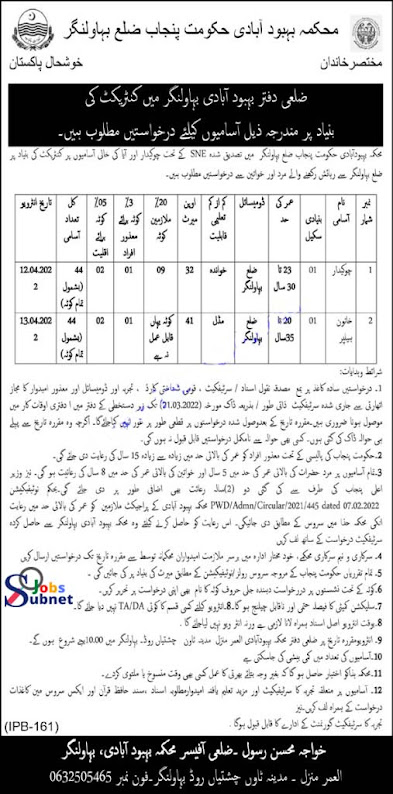 محکمہ بہبود آبادی حکومت پنجاب ضلع بہاولنگر
مختصر خاندان
خوشحال پاکستان
ضلعی دفتر بہبود آبادی بہاولنگر میں کنٹریکٹ کی
بنیاد پر مندرجہ ذیل آسامیوں کیلئے درخواستیں مطلوب ہیں۔
محکمہ بہبود آبادی حکومت پنجاب ضلع بہاولنگر میں تصدیق شدہ SNE کے تحت چوکیدار اور آیا کی خالی آسامیوں پر کنٹریکٹ کی بنیاد پر
ضلع بہاولنگر سے رہائش رکھنے والے مرد اور خواتین سے درخواستیں مطلوب ہیں۔
نمبر شمار | نام آسامی | بنیادی سکیل | عمر کی حد | ڈومیسائل | کم از کم تعلیمی قابلیت | اوپن میرٹ | 20% ملازمین کوٹہ | 3% کوٹہ برائے معذور افراد | 05% کوٹہ برائے اقلیت | کل تعداد آسامی | تاریخ انٹرویو
1 | چوکیدار | 01 | 23 تا 30 سال | ضلع بہاولنگر | خواندہ | 32 | 09 | 01 | 02 | 44 (بشمول تمام کوٹہ) | 12.04.2022
2 | خاتون ہیلپر | 01 | 20 تا 35 سال | ضلع بہاولنگر | مڈل | 41 | کوٹہ یہاں قابل عمل نہ ہے | 01 | 02 | 44 (بشمول تمام کوٹہ) | 13.04.2022
شرائط و ہدایات:
1۔ درخواستیں سادہ کاغذ پر بمع مصدقہ نقول اسناد / سرٹیفکیٹ، قومی شناختی کارڈ، تجربہ اور ڈومیسائل اور معذور امیدوار کا مجاز
اتھارٹی سے جاری شدہ سرٹیفکیٹ ذاتی طور / بذریعہ ڈاک مورخہ (21.03.2022) تک زیر دستخطی کے دفتر میں دفتری اوقات کار میں
موصول ہونا ضروری ہیں۔ مقررہ تاریخ کے بعد وصول شدہ درخواستوں پر قطعی طور پر غور نہیں کیا جائے گا۔
2۔ حکومت پنجاب کی پالیسی کے تحت معذور افراد کو عمر کی بالائی حد میں زیادہ سے زیادہ 15 سال کی رعایت دی جائے گی۔
3۔ تمام آسامیوں پر مرد حضرات کی بالائی عمر کی حد میں 5 سال اور خواتین کی بالائی عمر کی حد میں 8 سال کی رعایت ہو گی۔ نیز وزیر
اعلیٰ پنجاب کی طرف سے کی گئی دو (2) سالہ رعایت بھی اضافی طور پر دی جائے گی۔ بحکم نوٹیفکیشن
PWD/Admn/Circular/2021/445 dated 07.02.2022 محکمہ بہبود آبادی کے پراجیکٹ ملازمین کو عمر کی بالائی حد میں رعایت
4۔ سرکاری و نیم سرکاری محکمے، خود مختار ادارہ میں برسر ملازمت امیدواران محکمانہ توسط سے مقررہ تاریخ تک درخواستیں ارسال کریں۔
5۔ تمام تقرریاں حکومت پنجاب کے مروجہ سروس رولز / نوٹیفکیشن کے مطابق میرٹ کی بنیاد پر کی جائیں گی۔
6۔ کوٹہ کے تحت نشستوں پر درخواست دہندہ جلی حروف کوٹہ کا نام بھی اپنی درخواست پر تحریر کریں۔
7۔ سلیکشن کمیٹی کا فیصلہ حتمی اور ناقابل چیلنج ہو گا۔ 8۔ انٹرویو کیلئے کسی قسم کا کوئی TA/DA نہیں دیا جائے گا۔
بوقت انٹرویو اصل اسناد ہمراہ لانا لازمی ہے ورنہ انٹرویو نہیں لیا جائے گا۔
9۔ انٹرویو مقررہ تاریخ پر ضلعی دفتر محکمہ بہبود آبادی العمر منزل مدینہ ٹاون چشتیاں روڈ بہاولنگر میں 10.00 بجے شروع ہوں گے۔
10۔ آسامیوں کی تعداد میں کمی بیشی کی جا سکتی ہے
11۔ محکمہ ہذا کو اختیار حاصل ہو گا کہ بغیر وجہ بتائے بھرتی کا عمل کسی بھی وقت منسوخ یا ملتوی کر دے۔
12۔ آسامیوں پر متعلقہ تجربہ کا سرٹیفکیٹ اور مزید تعلیم یافتہ امیدوار مطلوبہ اسناد، سند حافظ قرآن اور ایکس سروس مین کاغذات
درخواست کے ہمراہ لف کریں۔
تجربہ کا سرٹیفکیٹ گورنمنٹ کے ادارے کا قابل قبول ہو گا۔
Jobs
Subnet
(IPB-161)
خواجہ محسن رسول ۔ ضلعی آفیسر محکمہ بہبود آبادی، بہاولنگر
العمر منزل ۔ مدینہ ٹاون چشتیاں روڈ بہاولنگر۔ فون نمبر 0632505465